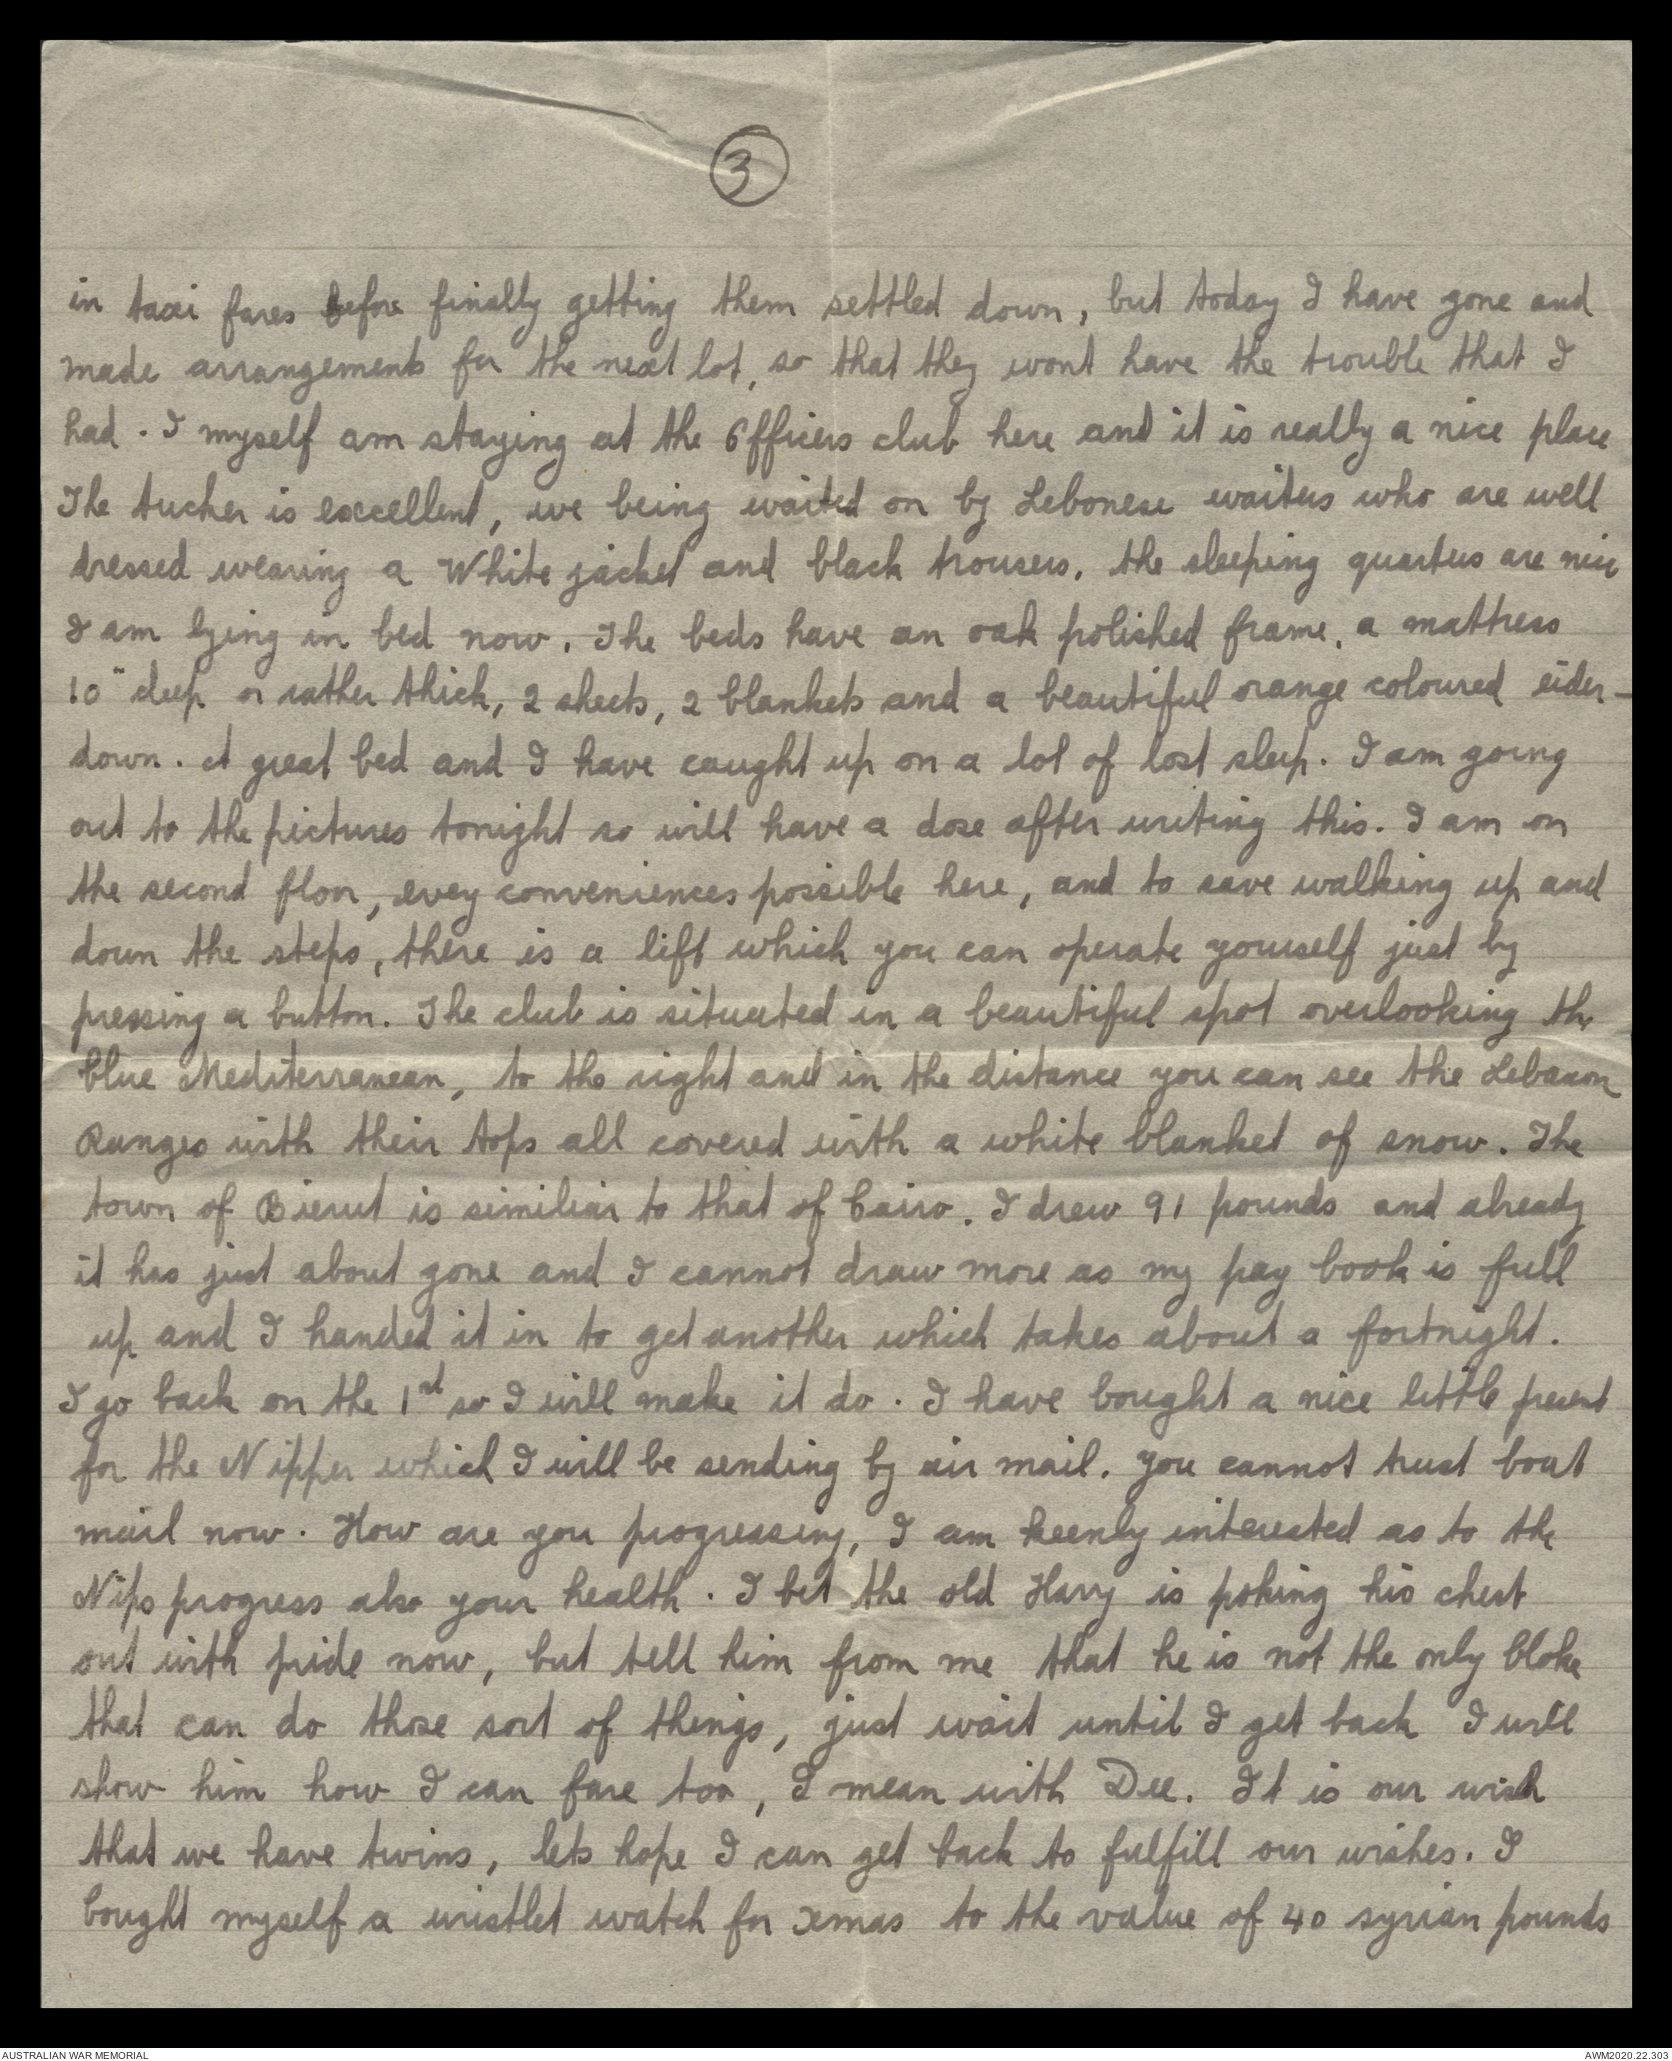 3
in taxi fares before finally getting them settled down, but today I have gone and
made arrangements for the next lot, so that they wont have the trouble that I
had. I myself am staying at the Officers club here and it is really a nice place
The tucker is excellent, we being waited on by Lebonese waiters who are well
dressed wearing a White jacket and black trousers, the sleeping quarters are nice
I am lying in bed now. The beds have an oak polished frame, a mattress
10" deep or rather thick, 2 sheets, 2 blankets and a beautiful orange coloured eider-
down. A great bed and I have caught up on a lot of lost sleep. I am going
out to the pictures tonight so will have a dose after writing this. I am on
the second floor, evey conveniences possible here, and to save walking up and
down the steps, there is a lift which you can operate yourself just by
pressing a button. The club is situated in a beautiful spot overlooking the
blue Mediterranean, to the right and in the distance you can see the Lebanon
Ranges with their tops all covered with a white blanket of snow. The
town of Bierut is similiar to that of Cairo. I drew 91 pounds and already
it has just about gone and I cannot draw more as my pay book is full
up and I handed it in to get another which takes about a fortnight.
I go back on the 1st so I will make it do. I have bought a nice little present
for the Nipper which I will be sending by air mail. You cannot trust boat
mail now. How are you progressing, I am keenly interested as to the
Nips progress also your health. I bet the old Harry is poking his chest
out with pride now, but tell him from me that he is not the only bloke
that can do those sort of things, just wait until I get back I will
show him how I can fare too, I mean with Dee. It is our wish
that we have twins, lets hope I can get back to fulfill our wishes. I
bought myself a wristlet watch for xmas to the value of 40 syrian pounds
AUSTRALIAN WAR MEMORIAL
AWM2020.22.303